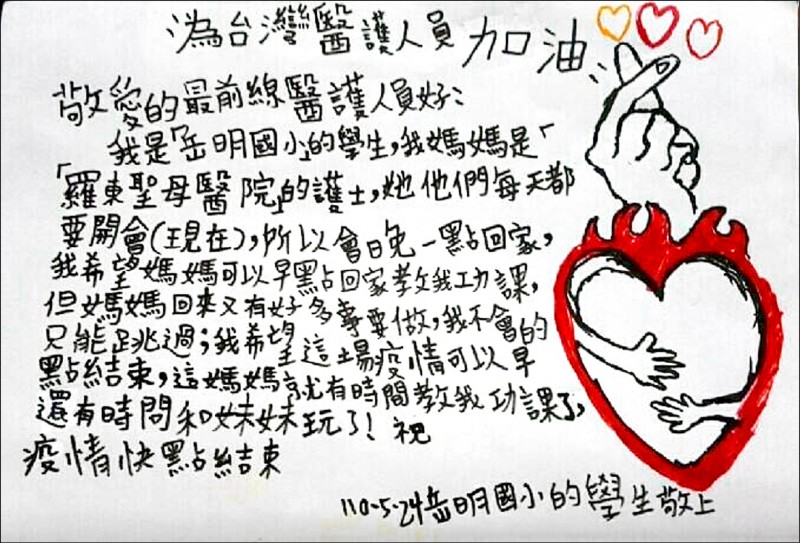 為台灣醫護人員加油
敬愛的最前線醫護人員好：
我是「岳明國小」的學生，我媽媽是「
「羅東聖母醫院」的護士，她他們每天都
要開會(現在)，所以會晚一點回家，
我希望媽媽可以早點回家教我功課，
但媽媽回來又有好多事要做，我不會的
只能跳過；我希望這場疫情可以早
點結束，這媽媽就有時間教我功課了，
還有時間和妹妹玩了！祝
疫情快點結束
110-5-24岳明國小的學生敬上